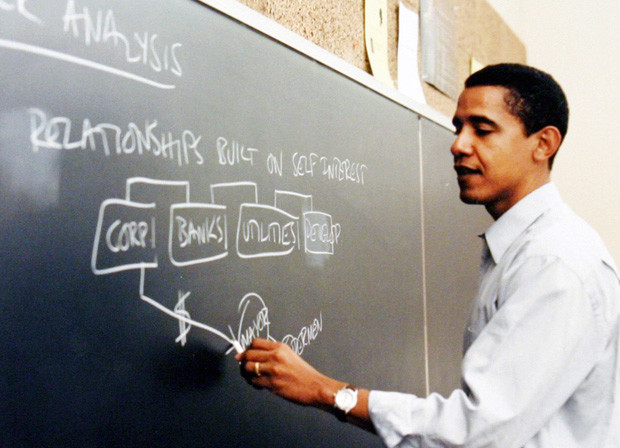 ANALYSIS
RELATIONSHIPS BUILT ON SELF INTEREST
CORP BANKS UTILITIES DEVELOP
$ MAYOR